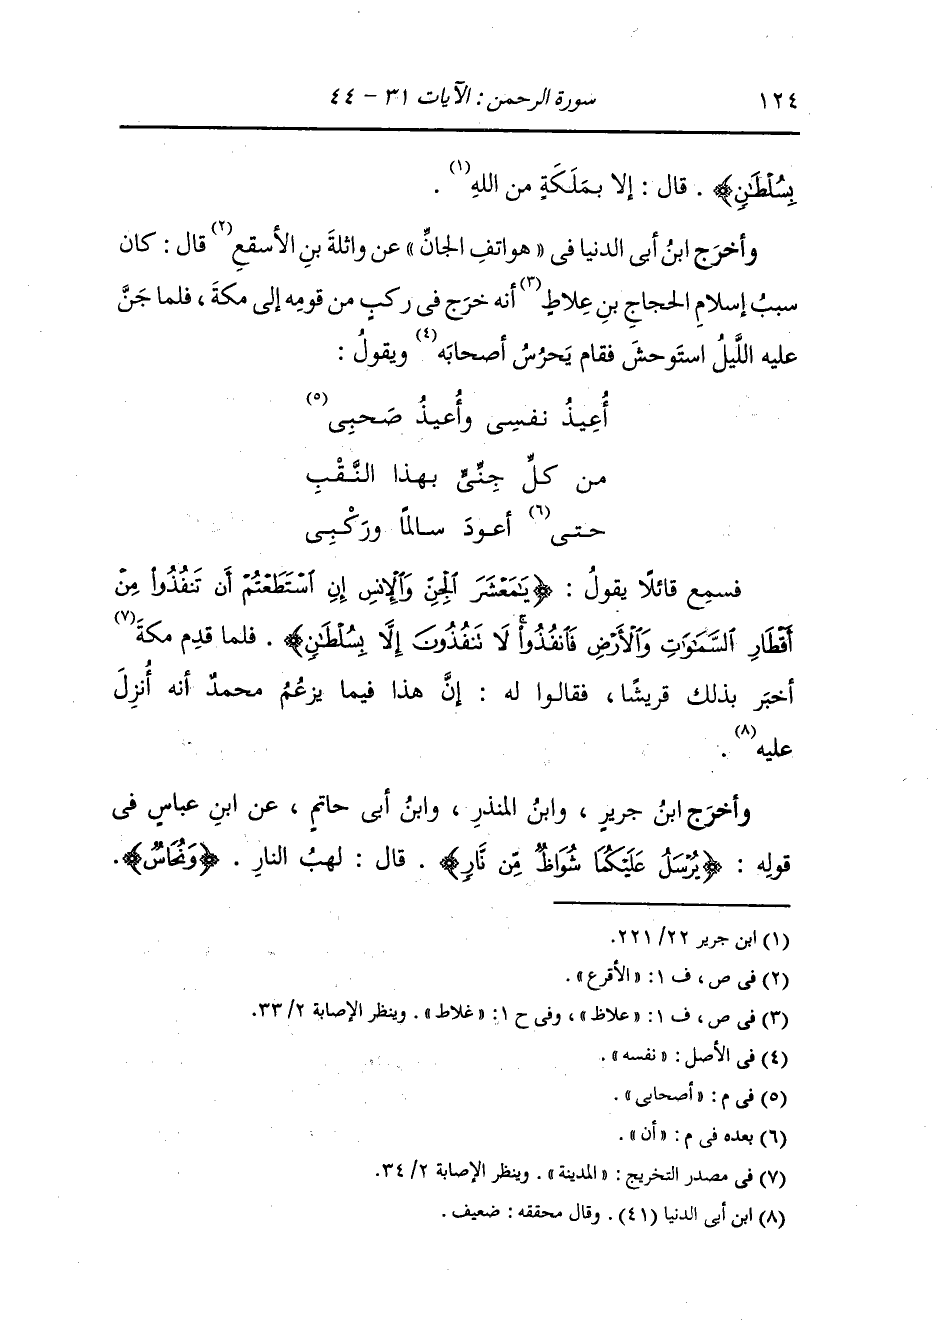 ١٢٤ سورة الرحمن : الآيات ٣١ - ٤٤
بِسُلْطَـٰنٍ﴾ . قال : إلا بمَلَكَةٍ من اللهِ(١) .
وأخرَج ابنُ أبى الدنيا فى « هواتفِ الجانِّ » عن واثلةَ بنِ الأسقعِ(٢) قال : كان
سببُ إسلامِ الحجاجِ بنِ عِلاطٍ(٣) أنه خرَج فى ركبٍ من قومِه إلى مكةَ ، فلما جَنَّ
عليه اللَّيلُ استَوحشَ فقام يَحرُسُ أصحابَه(٤) ويقولُ :
أُعِيذُ نفسِى وأُعيذُ صَحبِى(٥)
من كلِّ جِنِّىٍّ بهذا النَّقْبِ
حتى(٦) أعودَ سالمًا ورَكْبِى
فسمِع قائلًا يقولُ : ﴿يَـٰمَعْشَرَ ٱلْجِنِّ وَٱلْإِنسِ إِنِ ٱسْتَطَعْتُمْ أَن تَنفُذُوا۟ مِنْ
أَقْطَارِ ٱلسَّمَـٰوَٰتِ وَٱلْأَرْضِ فَٱنفُذُوا۟ۚ لَا تَنفُذُونَ إِلَّا بِسُلْطَـٰنٍ﴾ . فلما قدِم مكةَ(٧)
أخبَر بذلك قريشًا ، فقالوا له : إنَّ هذا فيما يزعُمُ محمدٌ أنه أُنزِلَ
عليه(٨) .
وأخرَج ابنُ جريرٍ ، وابنُ المنذرِ ، وابنُ أبى حاتمٍ ، عن ابنِ عباسٍ فى
قولِه : ﴿يُرْسَلُ عَلَيْكُمَا شُوَاظٌ مِّن نَّارٍ﴾ . قال : لهبُ النارِ . ﴿وَنُحَاسٌ﴾.
(١) ابن جرير ٢٢/ ٢٢١.
(٢) فى ص ، ف ١: « الأقرع » .
(٣) فى ص ، ف ١: « علاظ » ، وفى ح ١: « غلاط » . وينظر الإصابة ٢/ ٣٣.
(٤) فى الأصل : « نفسه » .
(٥) فى م : « أصحابى » .
(٦) بعده فى م : « أن » .
(٧) فى مصدر التخريج : « المدينة » . وينظر الإصابة ٢/ ٣٤.
(٨) ابن أبى الدنيا (٤١) . وقال محققه : ضعيف .